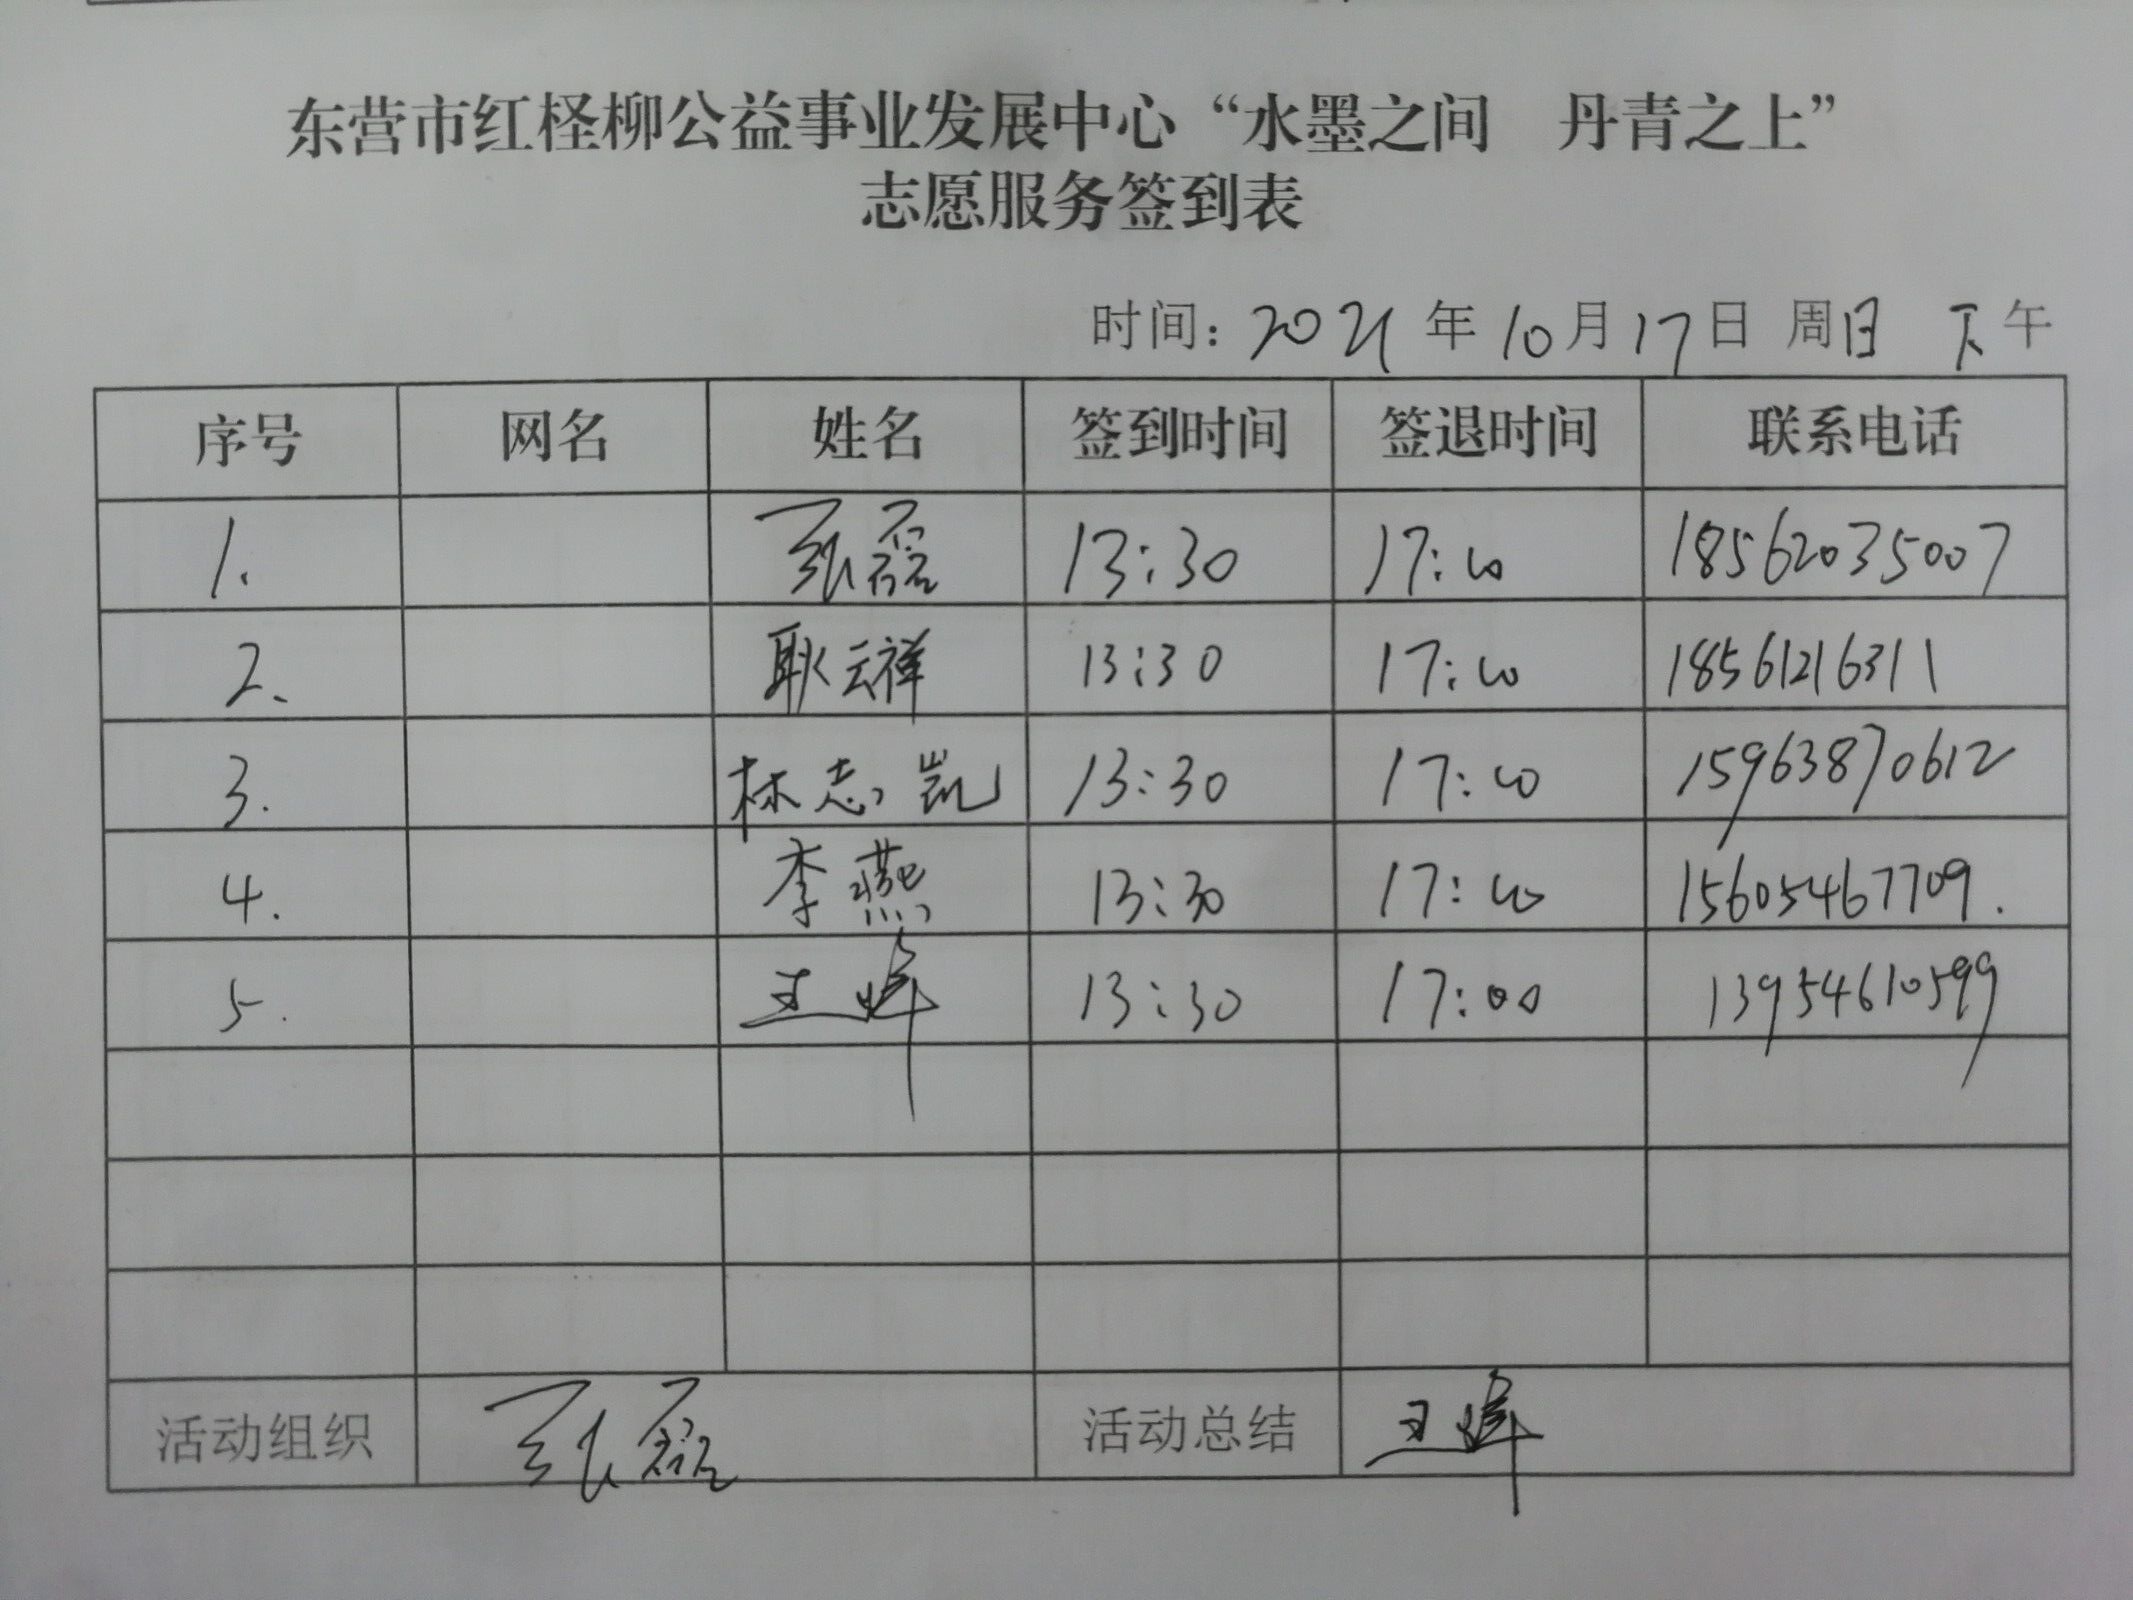 东营市红柽柳公益事业发展中心“水墨之间　丹青之上”
志愿服务签到表
时间：2021年10月17日 周日 下午
序号 网名 姓名 签到时间 签退时间 联系电话
1. 张磊 13:30 17:00 18562035007
2. 耿云祥 13:30 17:00 18561216311
3. 林志凯 13:30 17:00 15963870612
4. 李燕 13:30 17:00 15605467709.
5. 王峰 13:30 17:00 13954610599
活动组织 张磊 活动总结 王峰